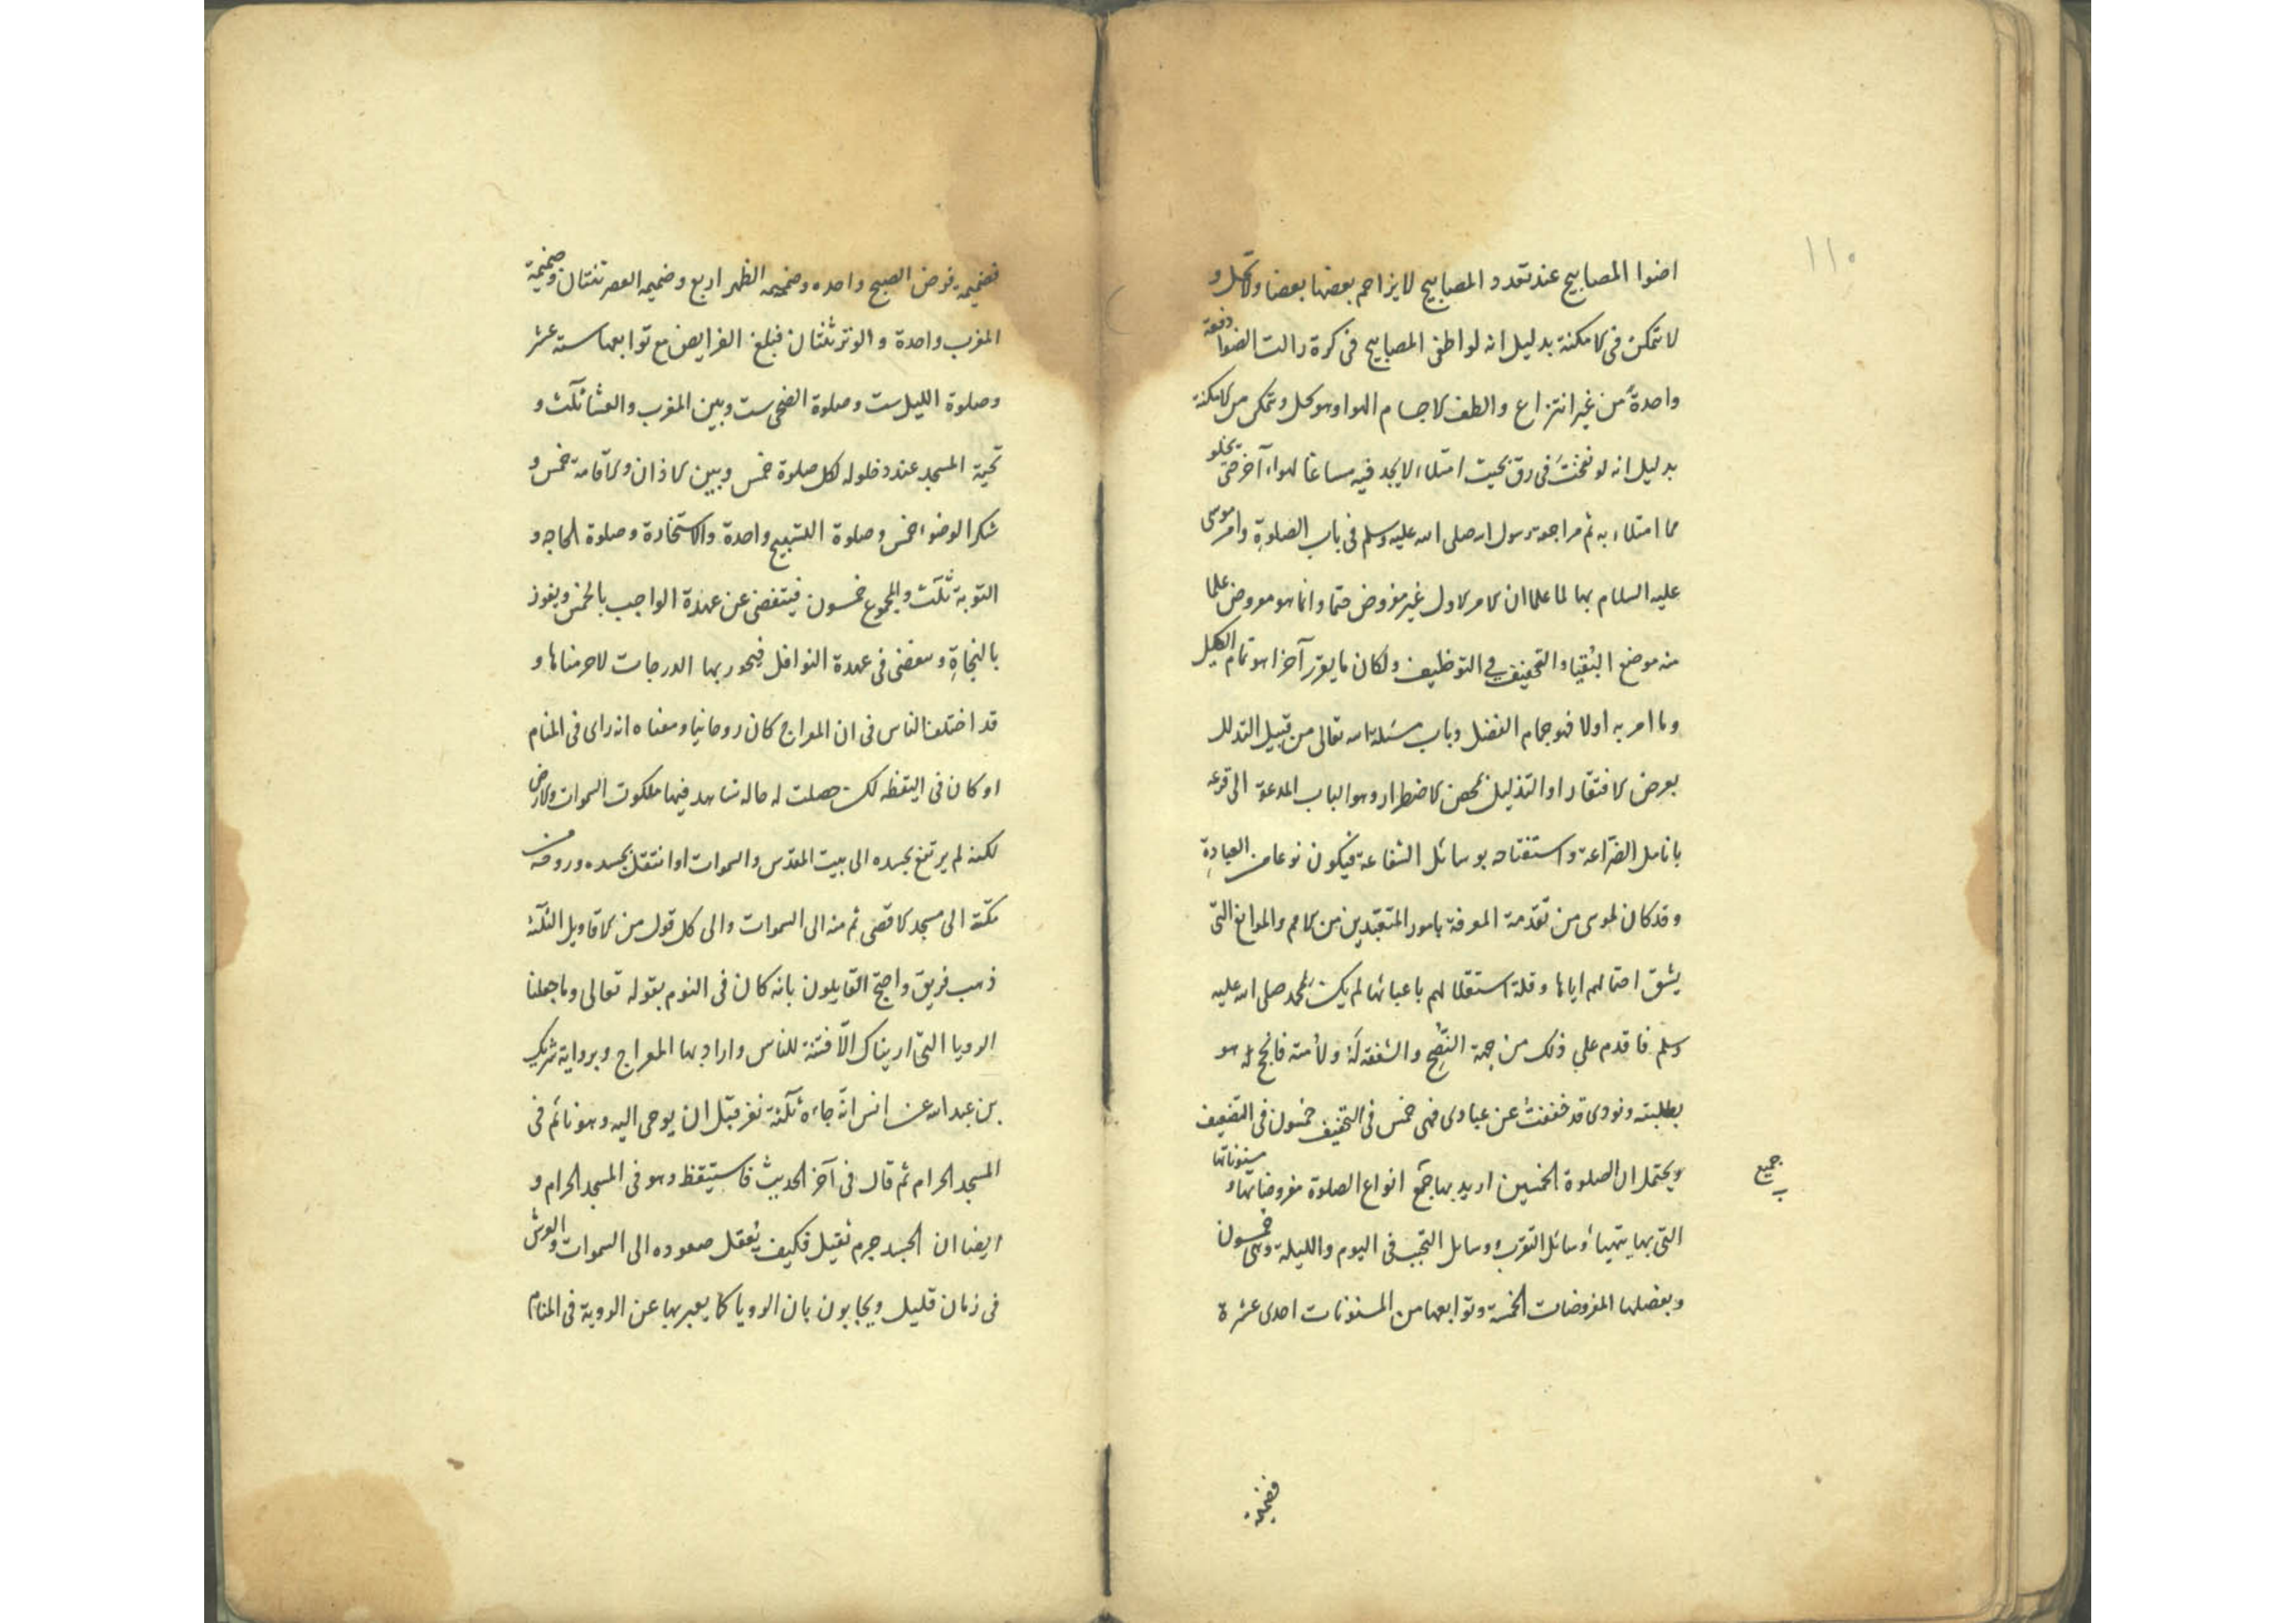 ١١٠
اضوا المصابيح عند تعدد المصابيح لا يزاحم بعضها بعضا ولا تحل و
لا تمكن فى الامكنة بدليل انه لو اطفى المصابيح فى كرة زالت الضوا دفعة
واحدةً من غير انتزاع والطف الاجسام الهوا وهو يحل و تمكن من الامكنة
بدليل انه لو نفختَ فى زق بحيث امتلاء لا يجد فيه مساغا لهواء آخر حتى يخلو
مما امتلاء به ثم مراجعة رسول الله صلى الله عليه وسلم فى باب الصلوةِ وامر موسى
عليه السلام بها لما علما ان الامر الاول غير مفروض حتما وانما هو معروض علما
منه موضع البُقيا والتخفيف في التوظيف ولكان ما يقرر آخرا هو تمام الكيل
وما امر به اولا فهو جمام الفضل وباب مسئلة الله تعالى من قبيل التدلل
بعرض الافتقار او التذليل بمحض الاضطرار وهو الباب المدعو الى قرعه
بانامل الضراعة واستفتاحه بوسائل الشفاعة فيكون نوعا من العبادةِ
وقد كان لموسى من تقدمة المعرفة بامور المتعبّدين من الامم والموانع التى
يشق احتمالهم اياها وقلة استقلالهم باعبائها لم يكن لمحمد صلى الله عليه
وسلم فاقدم على ذلك من جهة النُصحِ والشفقة لَهُ ولأمته فانجح له هو
بطلبته ونودى قد خففتُ عن عبادى فهى خمس فى التخفيف خمسون فى التضعيف
ويحتمل ان الصلوة الخمسين اريد بها جمع انواع الصلوة مفروضاتها و مسنوناتها
جميع
التى بها يتهيأ وسائل التقرب وسايل التحبب فى اليوم والليلة وهى خمسون
وبفضلها المفروضات الخمسة وتوابعها من المسنونات احدى عشرة
فضميمة
فضميمة فرض الصبح واحده وضميمه الظهر اربع وضميمه العصر ثنتان وضميمة
المغرب واحدة والوتر ثنتان فبلغ الفرايض مع توابعها ستة عشر
وصلوة الليل ست وصلوة الضحى ست وبين المغرب والعشا ثلث و
تحية المسجد عند دخلوله لكل صلوة خمس وبين الاذان والاقامة خمس و
شكر الوضوء خمس وصلوة التسبيح واحدة والاستخارة وصلوة الحاجه و
التوبة ثلث والمجموع خمسون فيتفضى عن عهدة الواجب بالخمس ويفوز
بالنجاةِ و فى عهدة النوافل فيحور بها الدرجات لاحرمناها و
قد اختلف الناس فى ان المعراج كان روحانيا ومعناه انه راى فى المنام
او كان فى اليقظه لكن حصلت له حاله شاهد فيها ملكوت السموات والارض
لكنه لم يرتفع بجسده الى بيت المقدس والسموات او انتقل بجسده وروحه من
مكّة الى مسجد الاقصى ثم منه الى السموات والى كل قول من الاقاويل الثلثة
ذهب فريق واحتج القايلون بانه كان فى النوم بقوله تعالى وما جعلنا
الرويا التى اريناك الّا فتنة للناس واراد بها المعراج وبرواية شريك
بن عبد الله عن انس انّه جاءه ثلثة نفر قبل ان يوحى اليه وهو نائم فى
المسجد الحرام ثم قال فى آخر الحديث فاستيقظ وهو فى المسجد الحرام و
ايضا ان الجسد جرم ثقيل فكيف يُعقل صعوده الى السموات والعرش
فى زمان قليل ويجابون بان الرويا كما يعبر بها عن الروية فى المنام